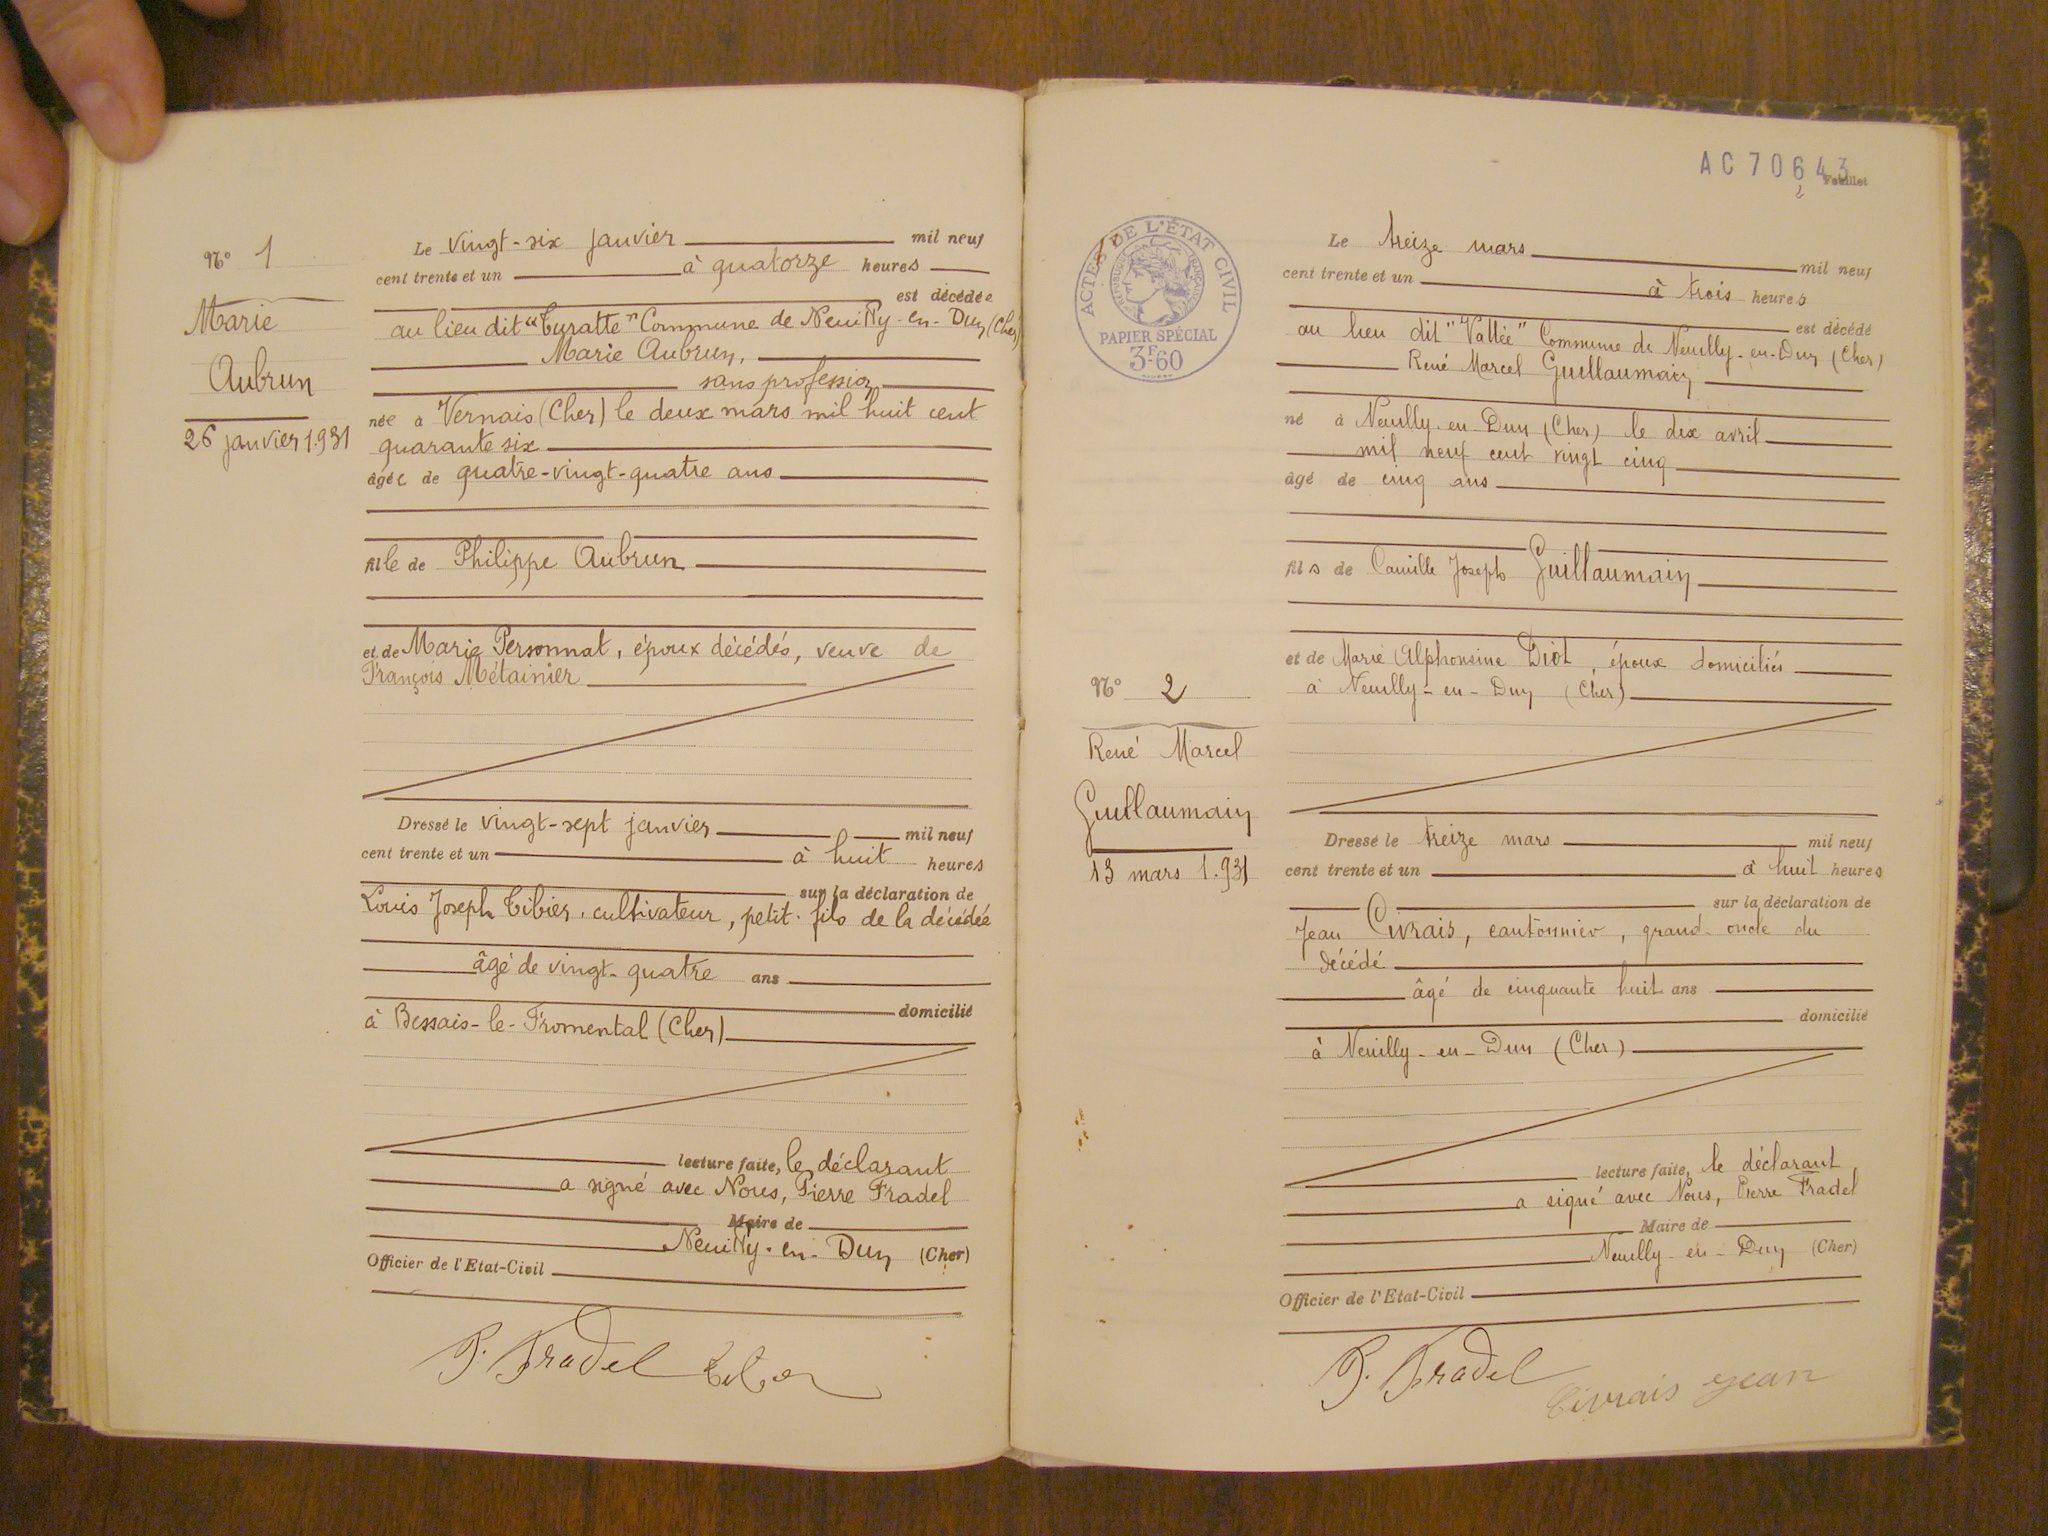 N° 1
Marie
Aubrun
26 janvier 1931
Le vingt-six janvier mil neuf
cent trente et un à quatorze heures
est décédée
au lieu dit "Turatte" Commune de Neuilly-en-Dun (Cher)
Marie Aubrun,
sans profession
née à Vernais (Cher) le deux mars mil huit cent
quarante six
âgée de quatre-vingt-quatre ans
fille de Philippe Aubrun
et de Marie Personnat, époux décédés, veuve de
François Métainier
Dressé le vingt-sept janvier mil neuf
cent trente et un à huit heures
sur la déclaration de
Louis Joseph Tibier, cultivateur, petit-fils de la décédée
âgé de vingt-quatre ans
domicilié
à Bessais-le-Fromental (Cher)
lecture faite, le déclarant
a signé avec Nous, Pierre Fradel
Maire de
Neuilly-en-Dun (Cher)
Officier de l'Etat-Civil
P. Fradel Tibier
AC 70643
Feuillet
2
ACTES DE L'ÉTAT CIVIL
RÉPUBLIQUE FRANÇAISE
PAPIER SPÉCIAL
3F60
N° 2
René Marcel
Guillaumain
13 mars 1.931
Le treize mars mil neuf
cent trente et un à trois heures
est décédé
au lieu dit "Vallée" Commune de Neuilly-en-Dun (Cher)
René Marcel Guillaumain
né à Neuilly-en-Dun (Cher) le dix avril
mil neuf cent vingt cinq
âgé de cinq ans
fils de Camille Joseph Guillaumain
et de Marie Alphonsine Diot, époux domiciliés
à Neuilly-en-Dun (Cher)
Dressé le treize mars mil neuf
cent trente et un à huit heures
sur la déclaration de
Jean Civrais, cantonnier, grand-oncle du
décédé
âgé de cinquante huit ans
domicilié
à Neuilly-en-Dun (Cher)
lecture faite, le déclarant
a signé avec Nous, Pierre Fradel
Maire de
Neuilly-en-Dun (Cher)
Officier de l'Etat-Civil
P. Fradel Civrais Jean